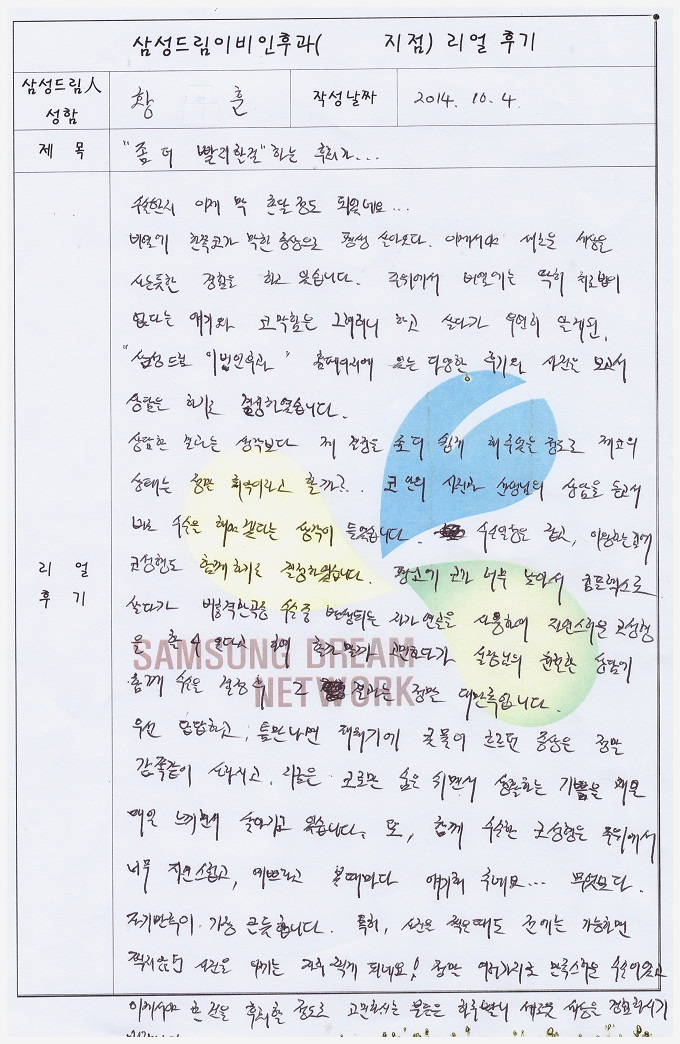 삼성드림이비인후과(      지점) 리얼 후기
삼성드림人
성함
황   훈
작성날짜
2014. 10. 4.
제 목
"좀 더 빨리할걸" 하는 후회가...
리 얼
후 기
수술한지 이제 막 한달 정도 되었네요...
비염과 한쪽코가 막힌 증상으로 평생 살아오다. 이제서야 새로운 세상을
사는듯한 경험을 하고 있습니다. 주위에서 비염에는 딱히 치료법이
없다는 얘기와 코막힘은 그러려니 하고 살다가 우연히 알게된,
"삼성드림 이비인후과" 홈페이지에 있는 다양한 후기와 사진을 보고서
상담을 하기로 결정하였습니다.
상담한 결과는 생각보다 제 코를 좀더 쉽게 치료할 수 있는 정도로 제 코의
상태는 정말 최악이라고 할까?.. 코 안의 사진과 선생님의 상담을 듣고서
바로 수술을 해야겠다는 생각이 들었습니다. 수술일정을 잡고, 이왕하는김에
코성형도 함께 하기로 결정하였습니다. 평소에 코가 너무 낮아서 컴플렉스로
살다가 비중격만곡증 수술중 발생되는 자가연골을 사용하여 자연스러운 코성형
을 할 수 있다고 하여 할까 말까 고민하다가 실장님의 친절한 상담과
함께 수술을 결정 후 그 결과는 정말 대만족입니다.
SAMSUNG DREAM
NETWORK
우선 답답하고, 틈만나면 때위기에 콧물이 흐르던 증상은 정말
감쪽같이 사라지고, 지금은 코로만 숨을 쉬면서 생활하는 기쁨을 매일
매일 느끼면서 살아가고 있습니다. 또, 함께 수술한 코성형은 주위에서
너무 자연스럽고, 예쁘다고 볼때마다 얘기해 주네요... 무엇보다.
자기만족이 가장 큰듯합니다. 특히, 사진을 찍을때도 전에는 가능하면
찍지않던 사진을 이제는 자주 찍게 되네요! 정말 여러가지로 만족스러운 수술이었고
이제서야 한 것을 후회할 정도로 고민하시는 분들은 하루빨리 새로운 세상을 경험하시기